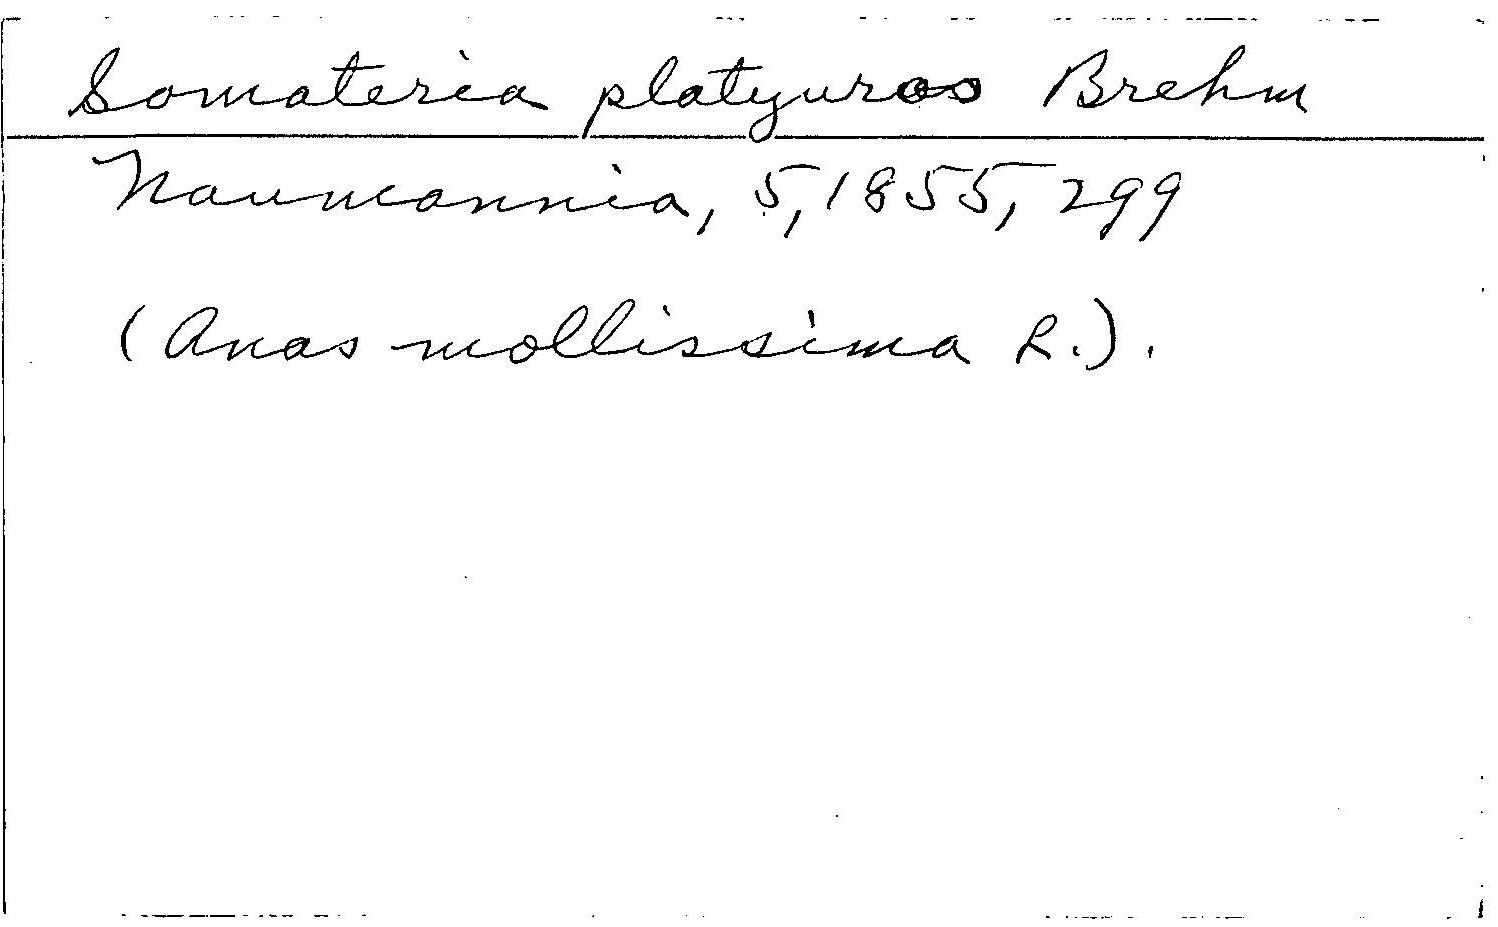 Somateria platyuros Brehm
Naumannia, 5, 1855, 299
(Anas mollissima L.).